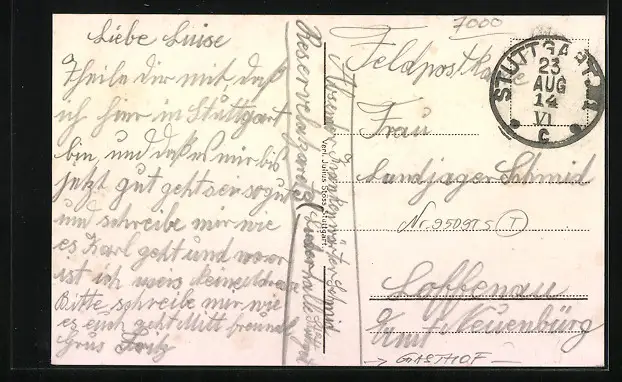 Liebe Luise
Theile dir mit, daß
ich hier in Stuttgart
bin, und daß es mir bis
jetzt gut geht sei so gut
und schreibe mir wie
es Karl geht und wo er
ist ich weis keine Adresse
Bitte schreibe mir wie
es euch geht Mitt freundl.
Grus Fritz
Reservelazarett
Liederhalle
Absender Krankenwärter Schmid
Verl. Julius Stoss, Stuttgart
7000
Feldpostkarte
STUTTGART
23
AUG
14
VI
C
Frau
Landjäger Schmid
Nr. 95097 S T
Loffenau
O/Amt Neuenbürg
→ GASTHOF